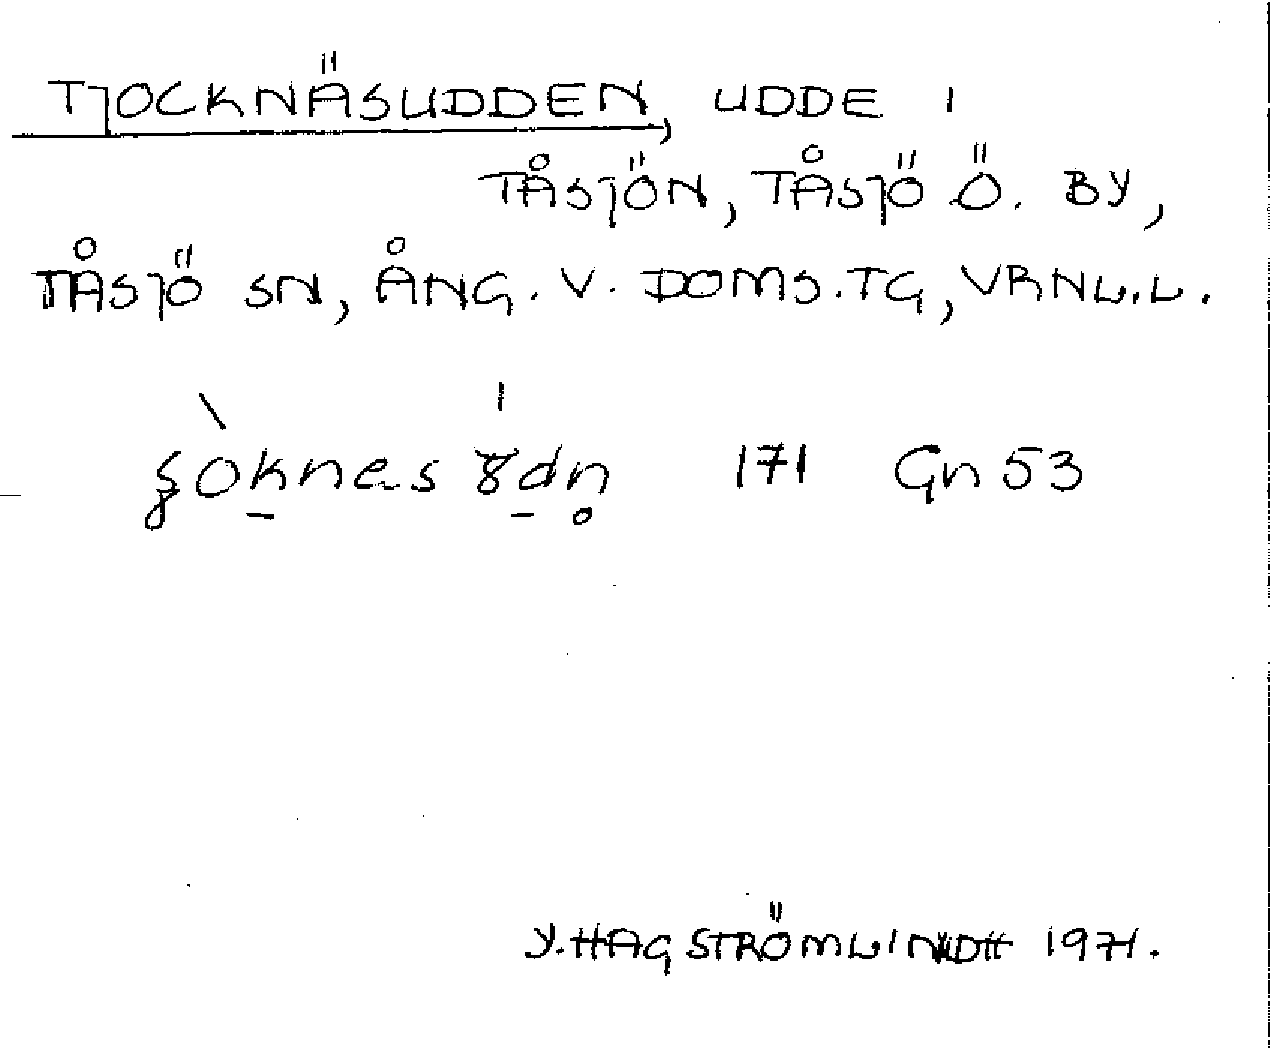 TJOCKNÄSUDDEN, UDDE I
TÅSJÖN, TÅSJÖ Ö. BY,
TÅSJÖ SN, ÅNG. V. DOMS.TG, VRNL.L.
171 Gn 53
Y. HAGSTRÖMLINDH 1971.